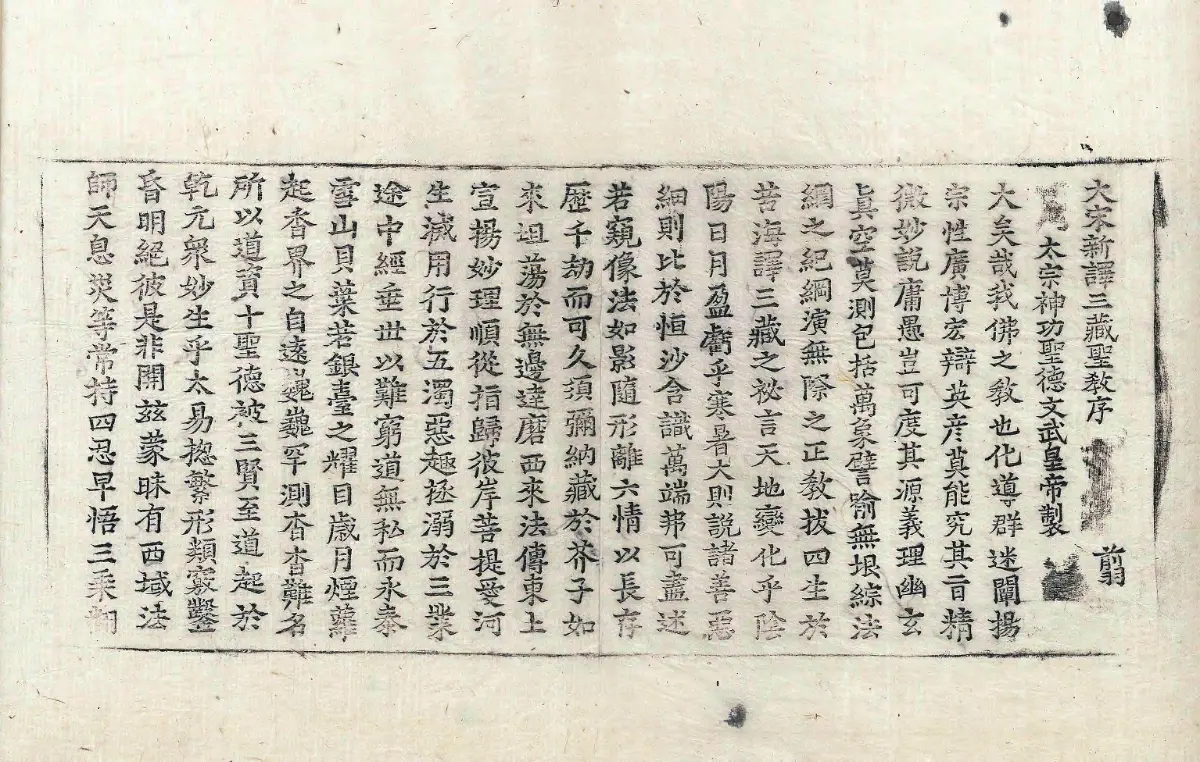 大宋新譯三藏聖教序 翦
太宗神功聖德文武皇帝製
大矣哉我佛之教也化導群迷闡揚
宗性廣博宏辯英彦莫能究其旨精
微妙說庸愚豈可度其源義理幽玄
眞空莫測包括萬象譬喻無垠綜法
網之紀綱演無際之正教拔四生於
苦海譯三藏之祕言天地變化乎陰
陽日月盈虧乎寒暑大則說諸善惡
細則比於恒沙含識萬端弗可盡述
若窺像法如影隨形離六情以長存
歷千劫而可久須彌納藏於芥子如
來迴蕩於無邊達磨西來法傳東土
宣揚妙理順從指歸彼岸菩提愛河
生滅用行於五濁惡趣拯溺於三業
途中經垂世以難窮道無私而永泰
雪山貝葉若銀臺之耀目歲月煙蘿
起香界之自遠巍巍罕測杳杳難名
所以道資十聖德被三賢至道起於
乾元衆妙生乎太易揔繁形類竅鑿
昏明絕彼是非開茲蒙昧有西域法
師天息災等常持四忍早悟三乘